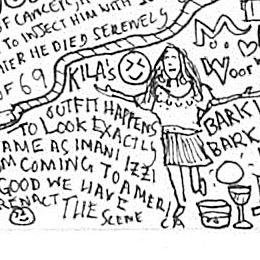 OF CANCER
TO INSECT HIM WITH
HE DIED SERENELY
OF 69
KILA'S
OUTFIT HAPPENS
TO LOOK EXACTLY
SAME AS IMANI IZZI
COMING TO AMERI
GOOD WE HAVE
REENACT THE SCENE
WOOF
BARK
BARK